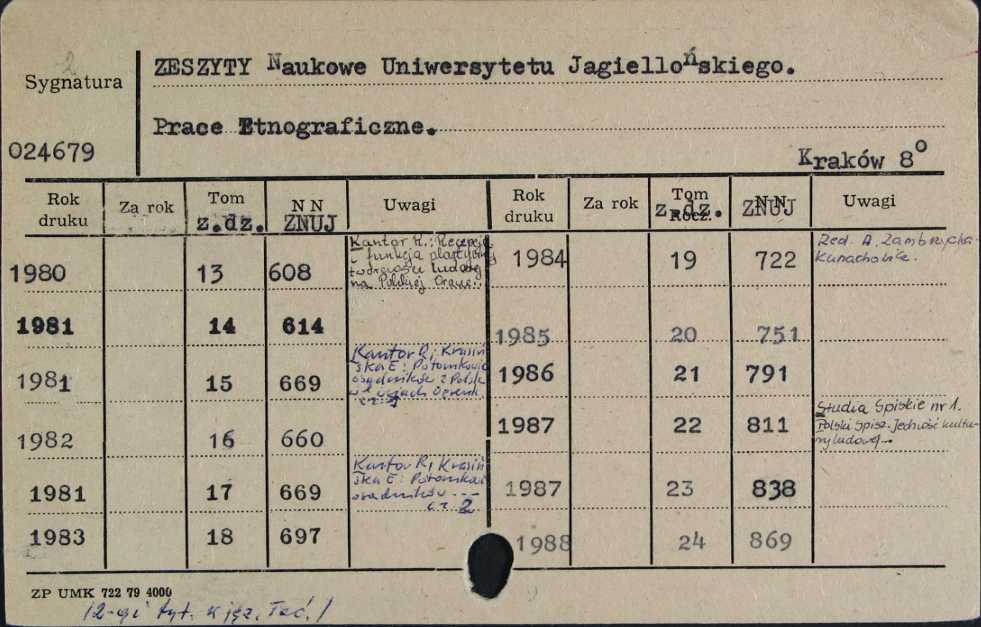 Sygnatura
ZESZYTY Naukowe Uniwersytetu Jagiellońskiego.
Prace Etnograficzne.
024679
Kraków 8°
Rok druku Za rok Tom z.dz. N N ZNUJ Uwagi Rok druku Za rok Tom Rocz. z.dz. N N ZNUJ Uwagi
1980 13 608 Kantor R.: Recepcja
i funkcja plastycznej
twórczości ludowej
na Polskiej Orawie.
1981 14 614
1981 15 669 Kantor R, Krasiń
ska E: Potomkowie
osadników z Polski
w
cz. 1
1982 16 660
1981 17 669 Kantor R, Krasiń
ska E: Potomkowie
osadników ...
cz. 2
1983 18 697
1984 19 722 Red. A. Zambrzycka-
Kunachowicz.
1985 20 751
1986 21 791
1987 22 811 Studia Spiskie nr 1.
Polski Spisz. Jedność kultu-
ry ludowej...
1987 23 838
1988 24 869
ZP UMK 722 79 4000
/2-gi tyt. w jęz. łac./